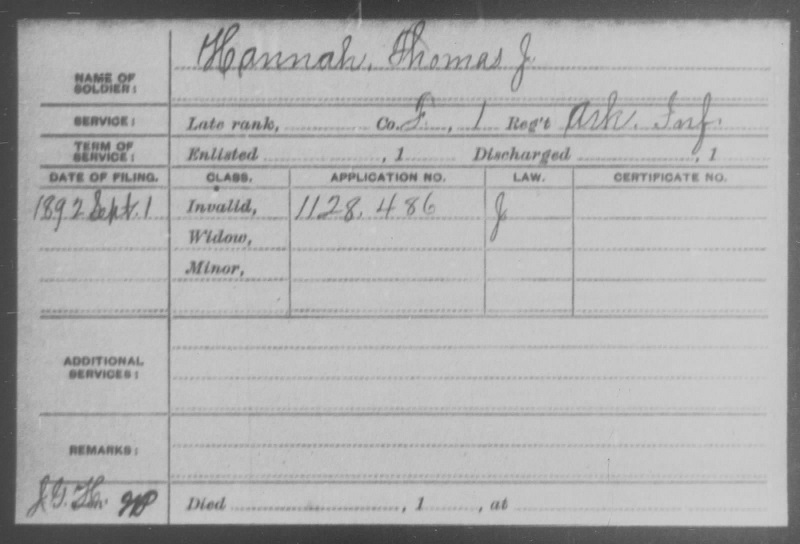 NAME OF SOLDIER: Hannah, Thomas J.
SERVICE: Late rank, Co. F, 1 Reg't Ark. Inf.
TERM OF SERVICE: Enlisted , 1 Discharged , 1
DATE OF FILING. CLASS. APPLICATION NO. LAW. CERTIFICATE NO.
1892 Sept. 1 Invalid, 1128.486 J
Widow,
Minor,
ADDITIONAL SERVICES:
REMARKS:
Died , 1 , at